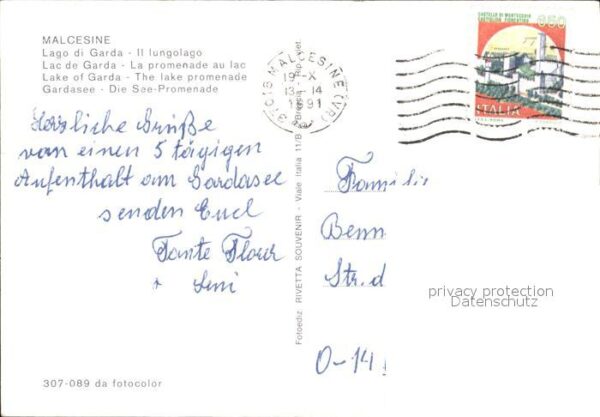 MALCESINE
Lago di Garda - Il lungolago
Lac de Garda - La promenade au lac
Lake of Garda - The lake promenade
Gardasee - Die See-Promenade
CASTELLO DI MONTECCHIO
CASTIGLION FIORENTINO
650
ITALIA
37018 MALCESINE (VR)
19-X
13 14
1991
Herzliche Grüße
von einen 5 tägigen
Aufenthalt am Gardasee
senden Euch
Tante
+
Familie
Benn
Str. d
O-14
Fotoediz. RIVETTA SOUVENIR - Viale Italia 11/B - Brescia - Rip. Viet.
privacy protection
Datenschutz
307-089 da fotocolor